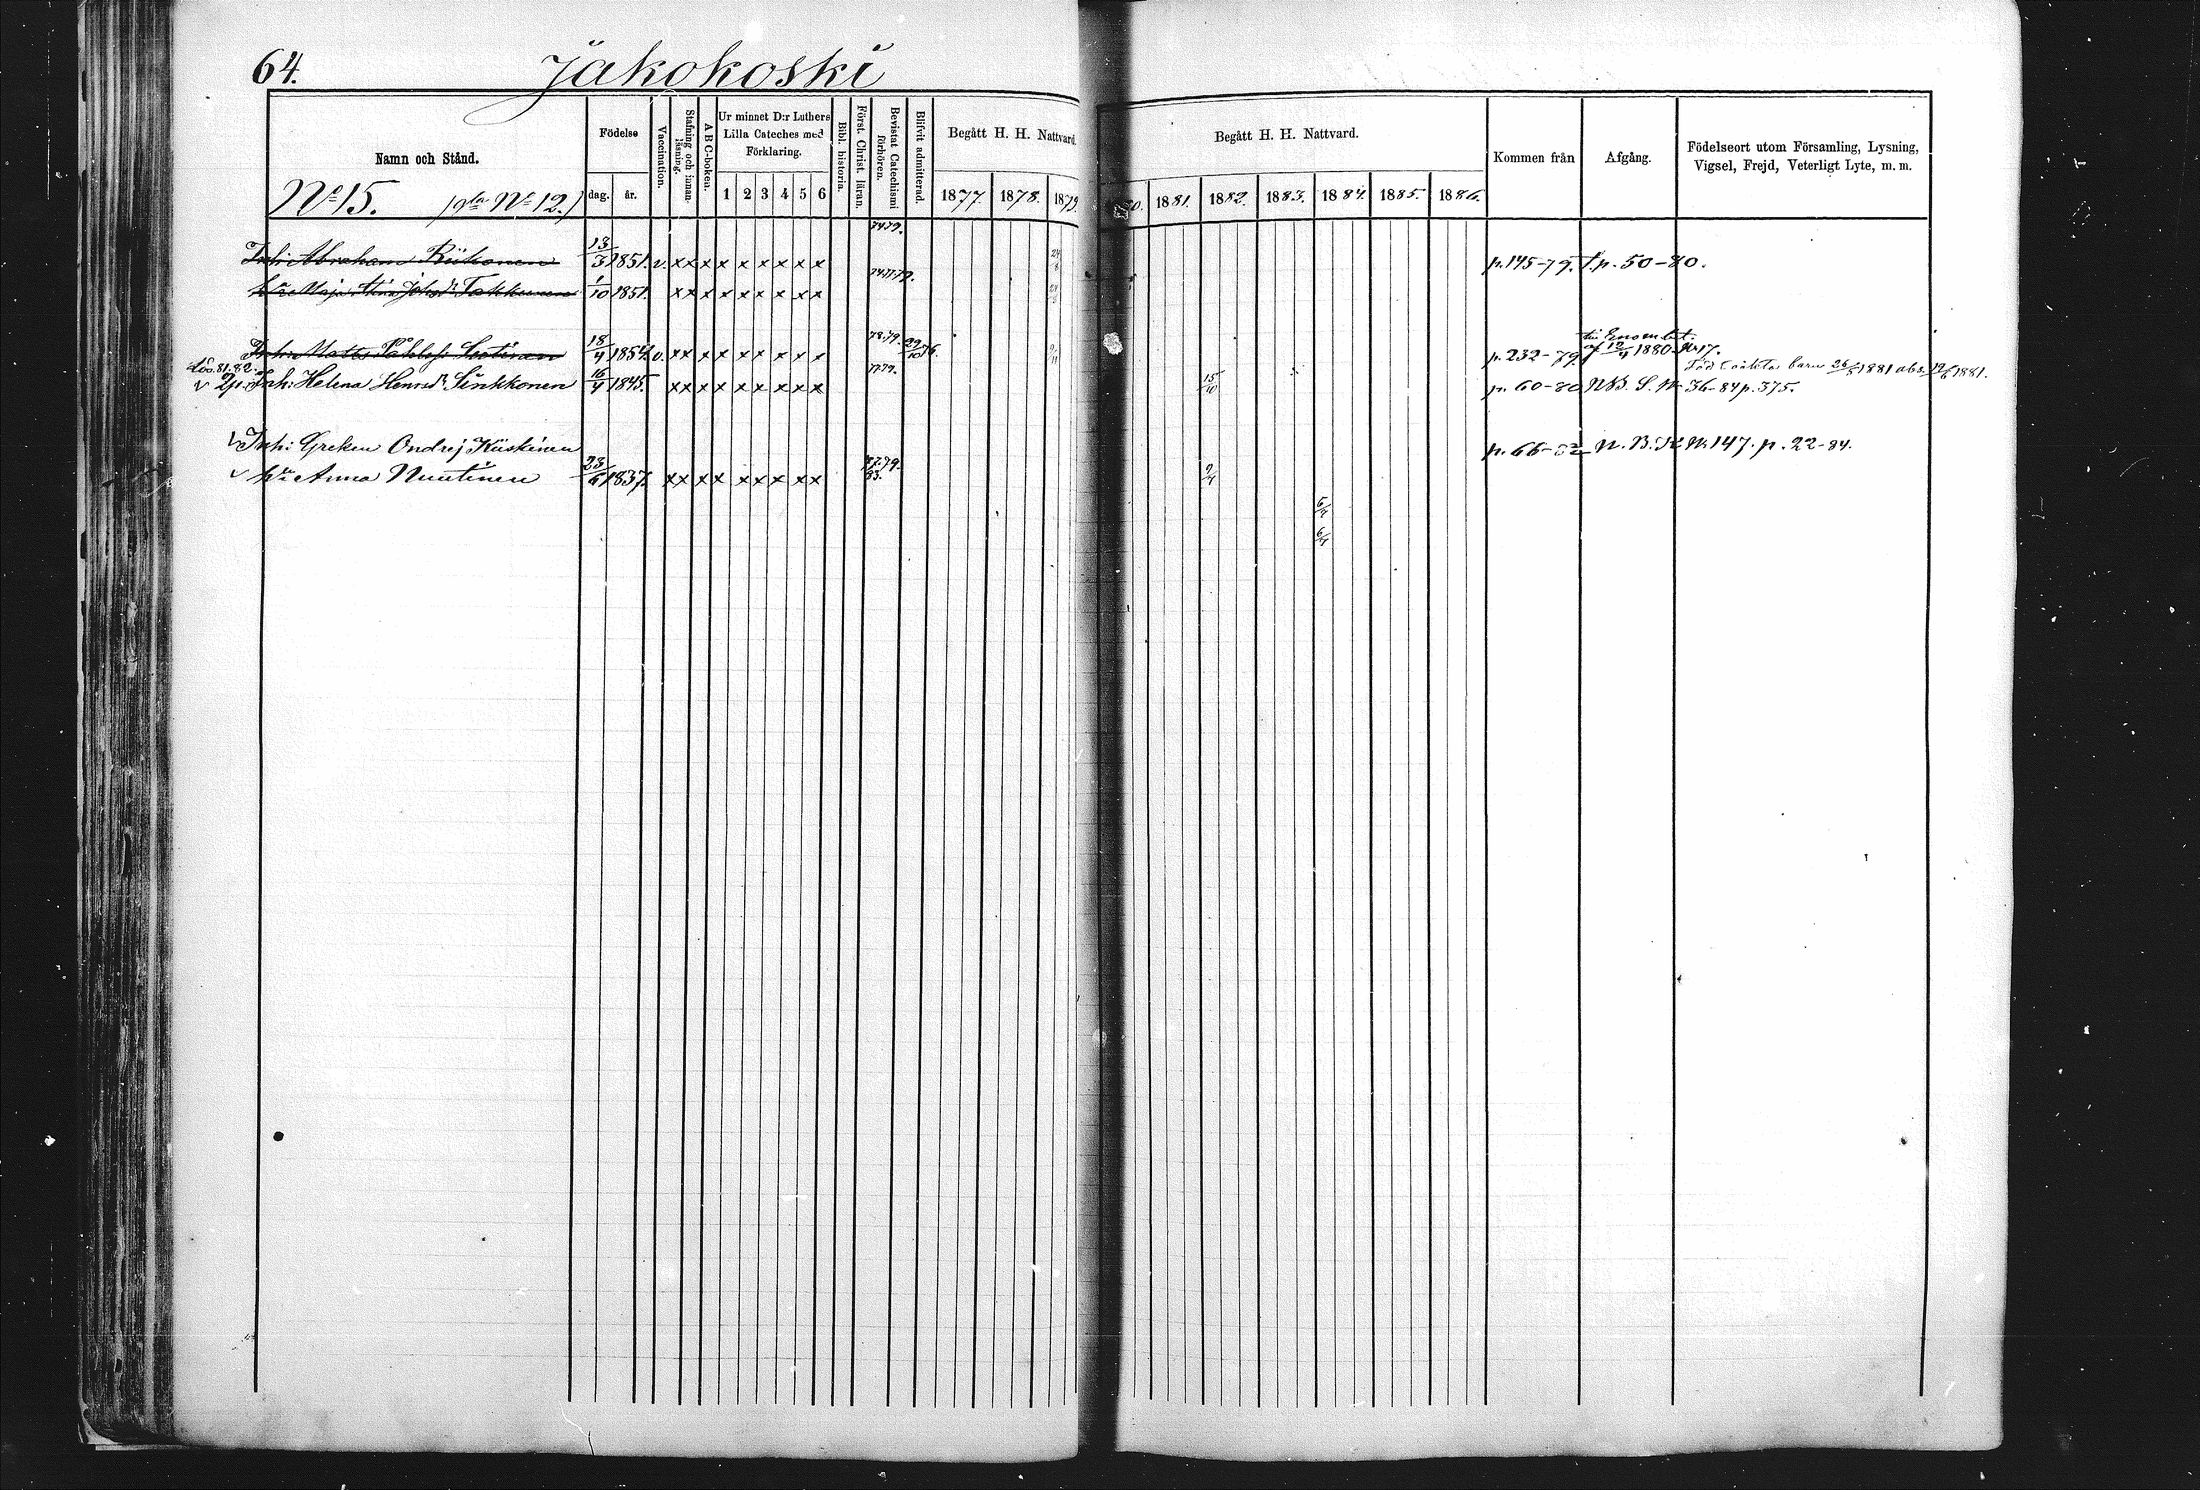 64. Jakokoski
Namn och Stånd.
Födelse
dag. år.
Vaccination.
Stafning och innanläsning.
A B C-boken.
Ur minnet D:r Luthers
Lilla Cateches med
Förklaring.
1 2 3 4 5 6
Bibl. historia.
Först. Christ. läran.
Bevistat Catechismi förhören.
Blifvit admitterad.
Begått H. H. Nattvard.
1877. 1878. 1879.
Begått H. H. Nattvard.
80. 1881. 1882. 1883. 1884. 1885. 1886.
Kommen från
Afgång.
Födelseort utom Församling, Lysning,
Vigsel, Frejd, Veterligt Lyte, m. m.
No 15. No 12.)
Inh: Abraham Riikonen 13/3 1851. v. x x x x x x x x x 7479. 24/8 p. 145-79. f. p. 50-80.
h:u Maja Johsd:r Takkunen 1/10 1851. x x x x x x x x x 24/8
Inh: Matts 18/4 1854. v. x x x x x x x x x 78.79. 29/10 76. p. 232-79. af 12/4 1880. No 17.
81.82. Inh: Helena Henrsd:r Sinkkonen 16/4 1845. x x x x x x x x x 7779. 15/10 p. 60-80 N.B. S. No 36-84 p. 375.
Föd oäkta barn 26/5 1881 abs. 19/6 1881.
v Inh: Greken Ondrej Kiiskinen p. 66-82 N. B. No 147. p. 22-84.
v h:u Anna Nuutinen 23/6 1837. x x x x x x x x x 77.79. 83. 9/4
6/4
6/4